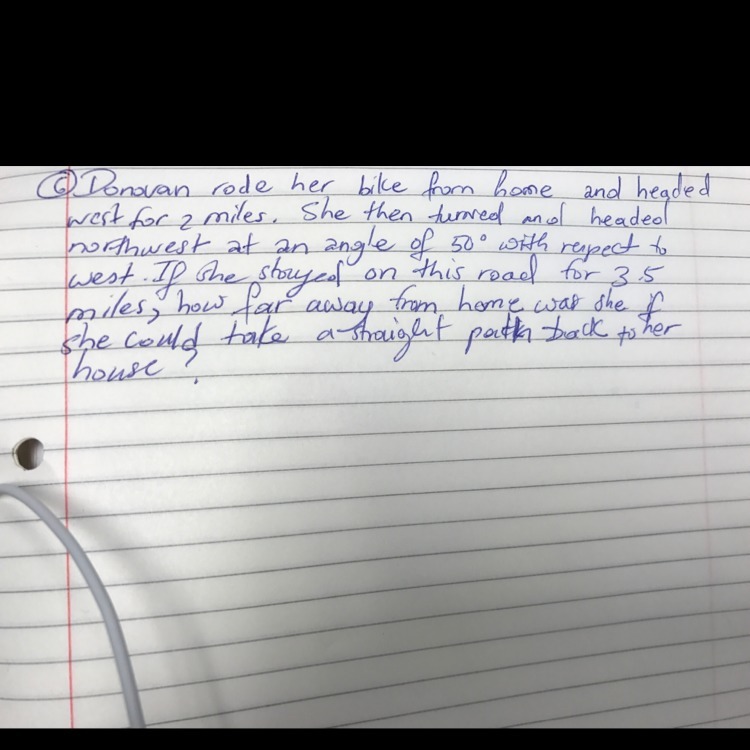 ⑥ Donovan rode her bike from home and headed
west for 2 miles. She then turned and headed
northwest at an angle of 50° with respect to
west. If she stayed on this road for 3.5
miles, how far away from home was she if
she could take a straight path back to her
house?